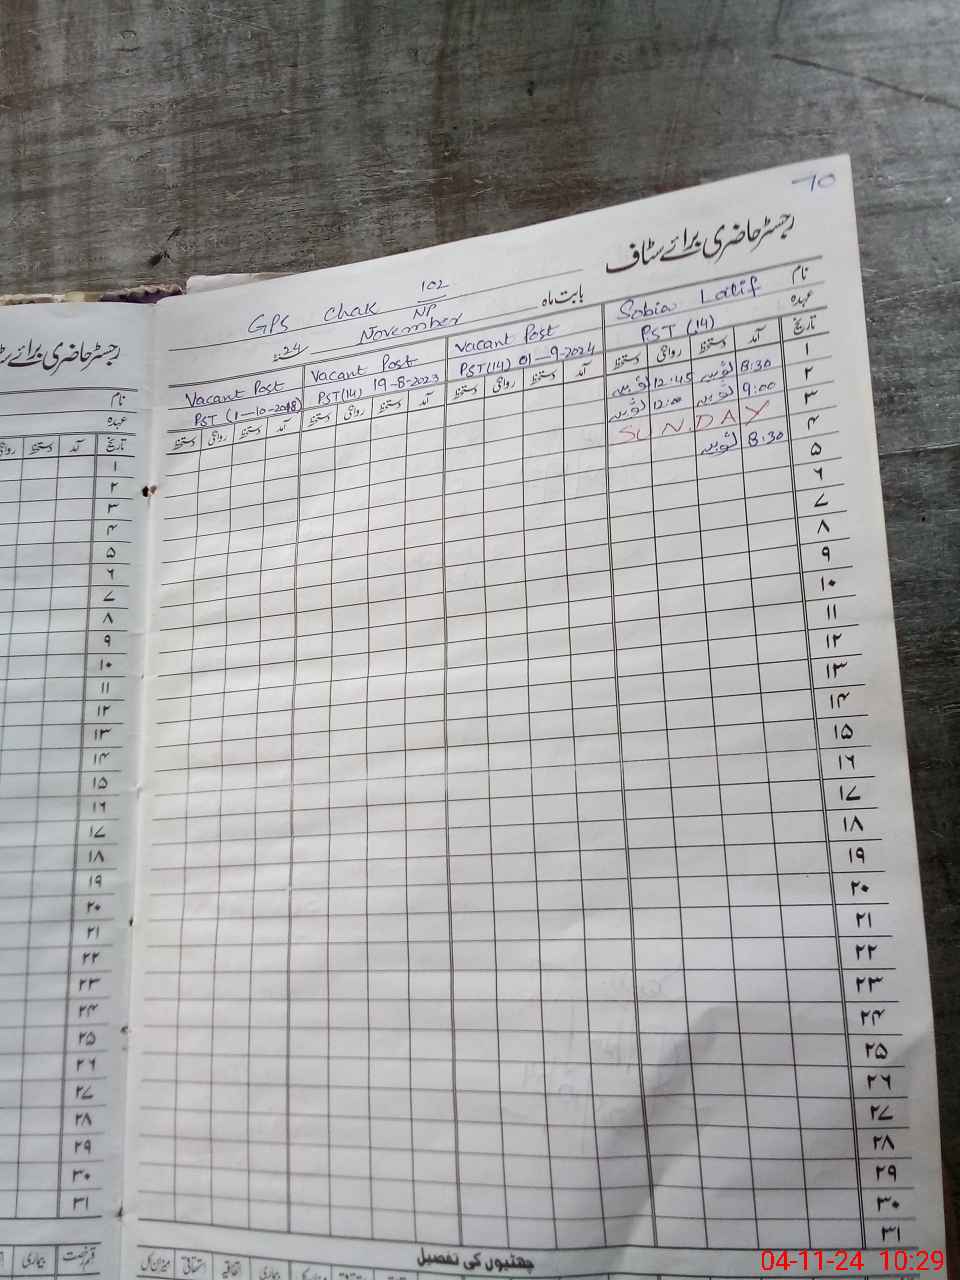 70
رجسٹر حاضری برائے سٹاف
GPS Chak 102/NP
بابت ماہ November 24
نام Sobia Latif Vacant Post Vacant Post Vacant Post
عہدہ PST (14) PST(14) 01-9-2024 PST(14) 19-8-2023 PST (1-10-2018)
تاریخ آمد دستخط روانگی دستخط آمد دستخط روانگی دستخط آمد دستخط روانگی دستخط آمد دستخط روانگی دستخط
۱ 8:30 12:45
۲ 9:00 12:00
۳ SUNDAY
۴ 8:30
۵
۶
۷
۸
۹
۱۰
۱۱
۱۲
۱۳
۱۴
۱۵
۱۶
۱۷
۱۸
۱۹
۲۰
۲۱
۲۲
۲۳
۲۴
۲۵
۲۶
۲۷
۲۸
۲۹
۳۰
۳۱
چھٹیوں کی تفصیل
میزان کل استحقاقی اتفاقیہ بیماری
رجسٹر حاضری برائے
نام
عہدہ
تاریخ آمد دستخط
۱
۲
۳
۴
۵
۶
۷
۸
۹
۱۰
۱۱
۱۲
۱۳
۱۴
۱۵
۱۶
۱۷
۱۸
۱۹
۲۰
۲۱
۲۲
۲۳
۲۴
۲۵
۲۶
۲۷
۲۸
۲۹
۳۰
۳۱
قسم رخصت بیماری
04-11-24 10:29